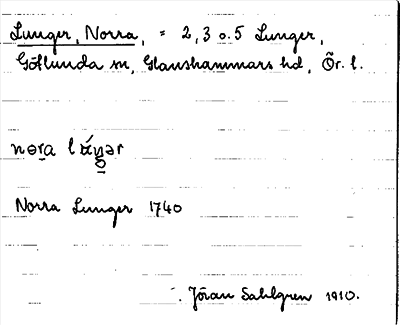 Lunger, Norra, = 2, 3 o. 5 Lunger,
Götlunda sn, Glanshammars hd, Ör. l.
Norra Lunger 1740
Jöran Sahlgren 1910.